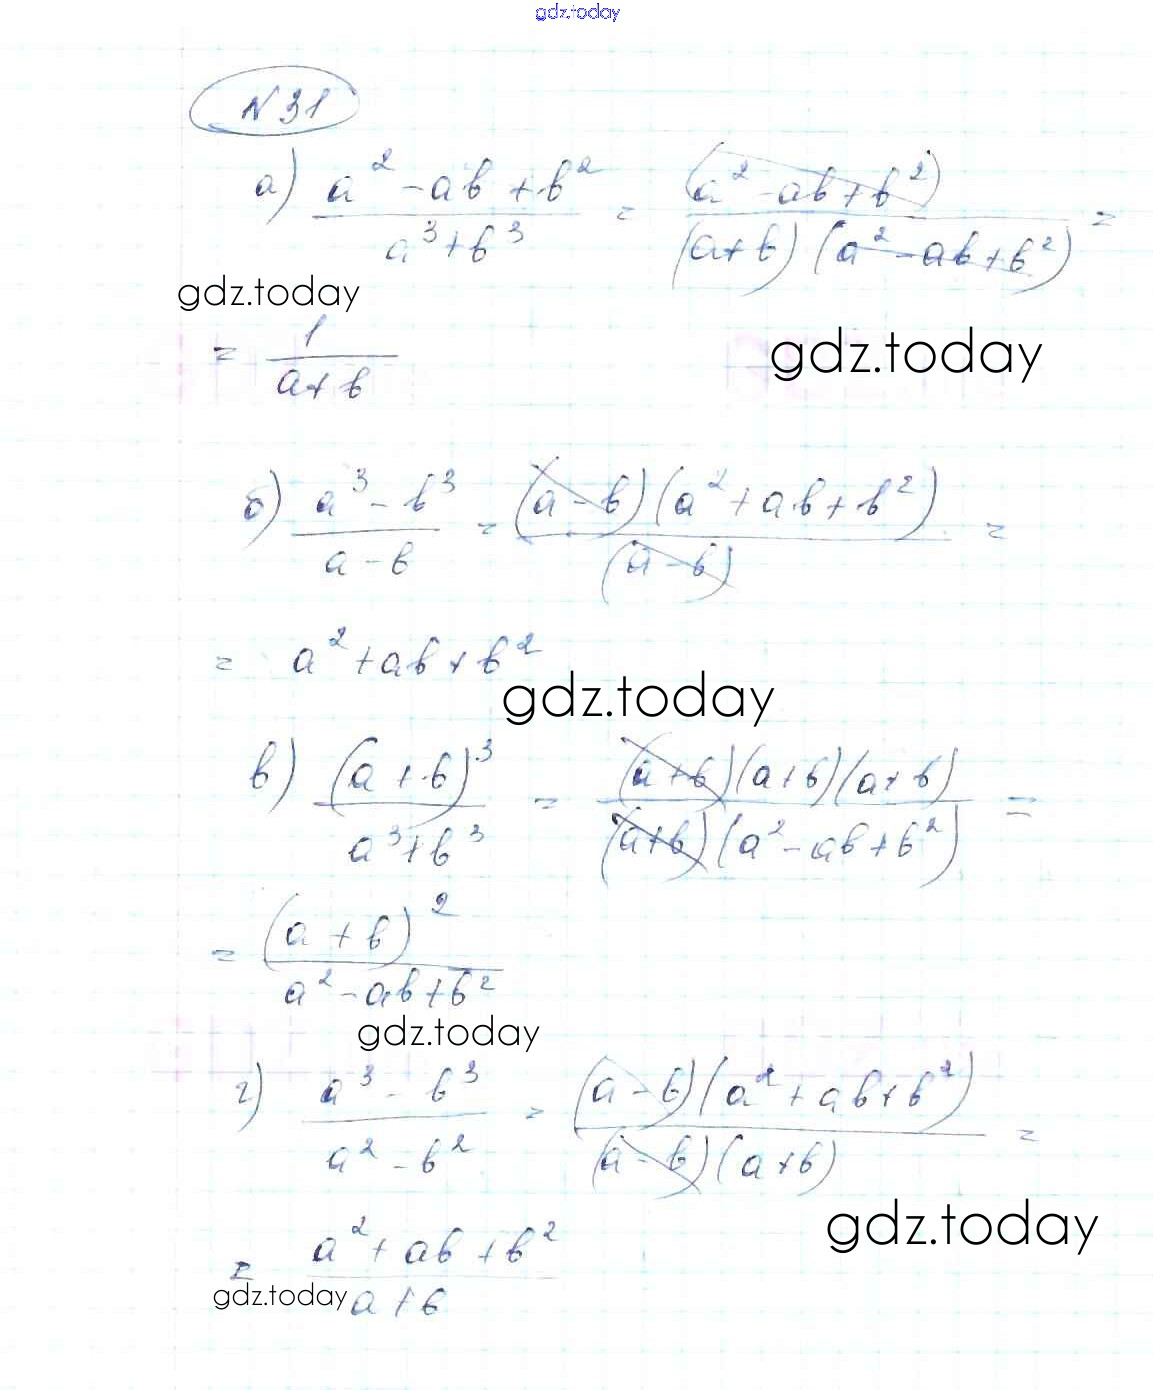 gdz.today
N 31
а) (a² - ab + b²)/(a³ + b³) = (a² - ab + b²)/((a + b)(a² - ab + b²)) =
gdz.today
= 1/(a + b)
gdz.today
б) (a³ - b³)/(a - b) = ((a - b)(a² + ab + b²))/((a - b)) =
= a² + ab + b²
gdz.today
в) (a + b)³/(a³ + b³) = ((a + b)(a + b)(a + b))/((a + b)(a² - ab + b²)) =
= (a + b)²/(a² - ab + b²)
gdz.today
г) (a³ - b³)/(a² - b²) = ((a - b)(a² + ab + b²))/((a - b)(a + b)) =
gdz.today
= (a² + ab + b²)/(a + b)
gdz.today